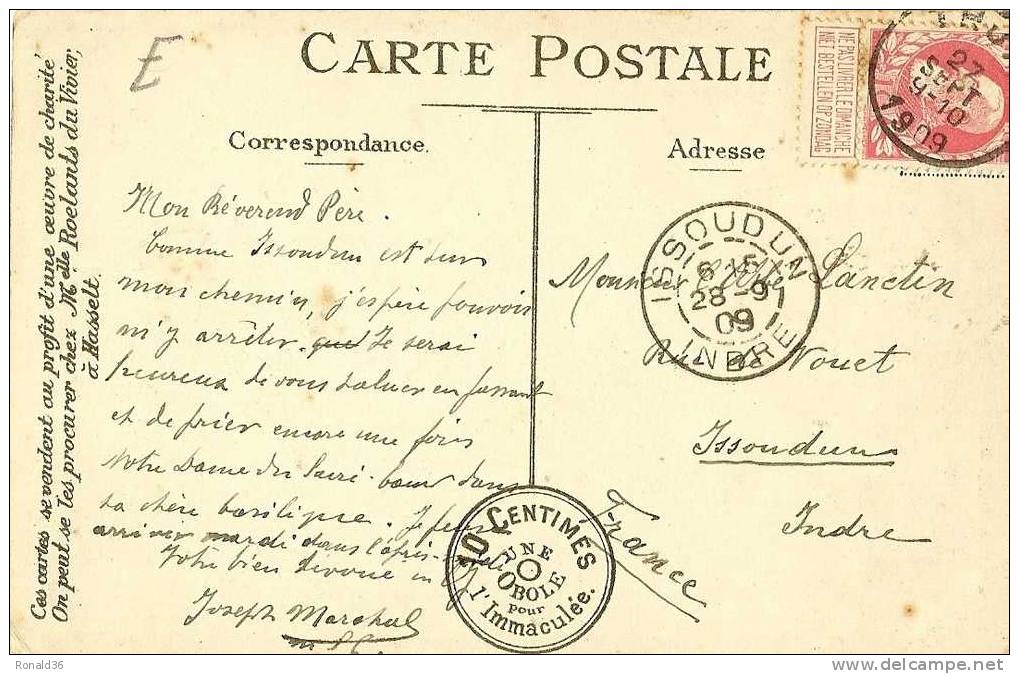 E
CARTE POSTALE
Correspondance.
Adresse
Ces cartes se vendent au profit d'une œuvre de charité
On peut se les procurer chez Mdlle Roelants du Vivier,
à Hasselt.
Mon Révérend Père.
Comme Issoudun est sur
mon chemin, j'espère pouvoir
m'y arrêter. Je serai
heureux de vous saluer en passant
et de prier encore une fois
Notre Dame du Sacré-Coeur dans
sa chère basilique. Je pense
arriver mardi dans l'après-
Votre bien dévoué in
Joseph Marchal
Monsieur l'Abbé Lanctin
Rue de Nouet
Issoudun
Indre
France
NE PAS LIVRER LE DIMANCHE
NIET BESTELLEN OP ZONDAG
27
SEPT
9-10
1909
ISSOUDUN
6 15
28-9
09
INDRE
10 CENTIMES
UNE
OBOLE
pour
l'Immaculée.
Ronald36
www.delcampe.net